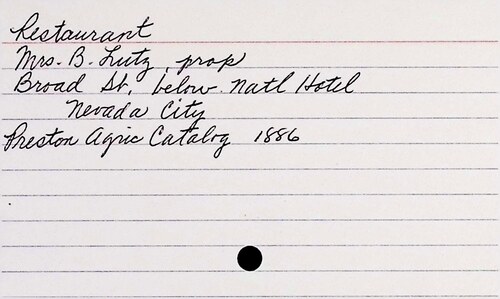 Restaurant
Mrs. B. Lutz, prop
Broad St, below Natl Hotel
Nevada City
Preston Agric Catalog 1886